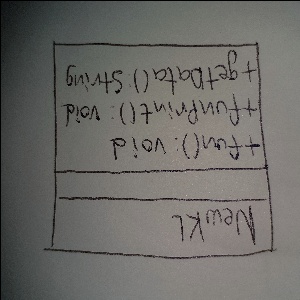 NewKL
+fun():void
+funPrint():void
+getData():String